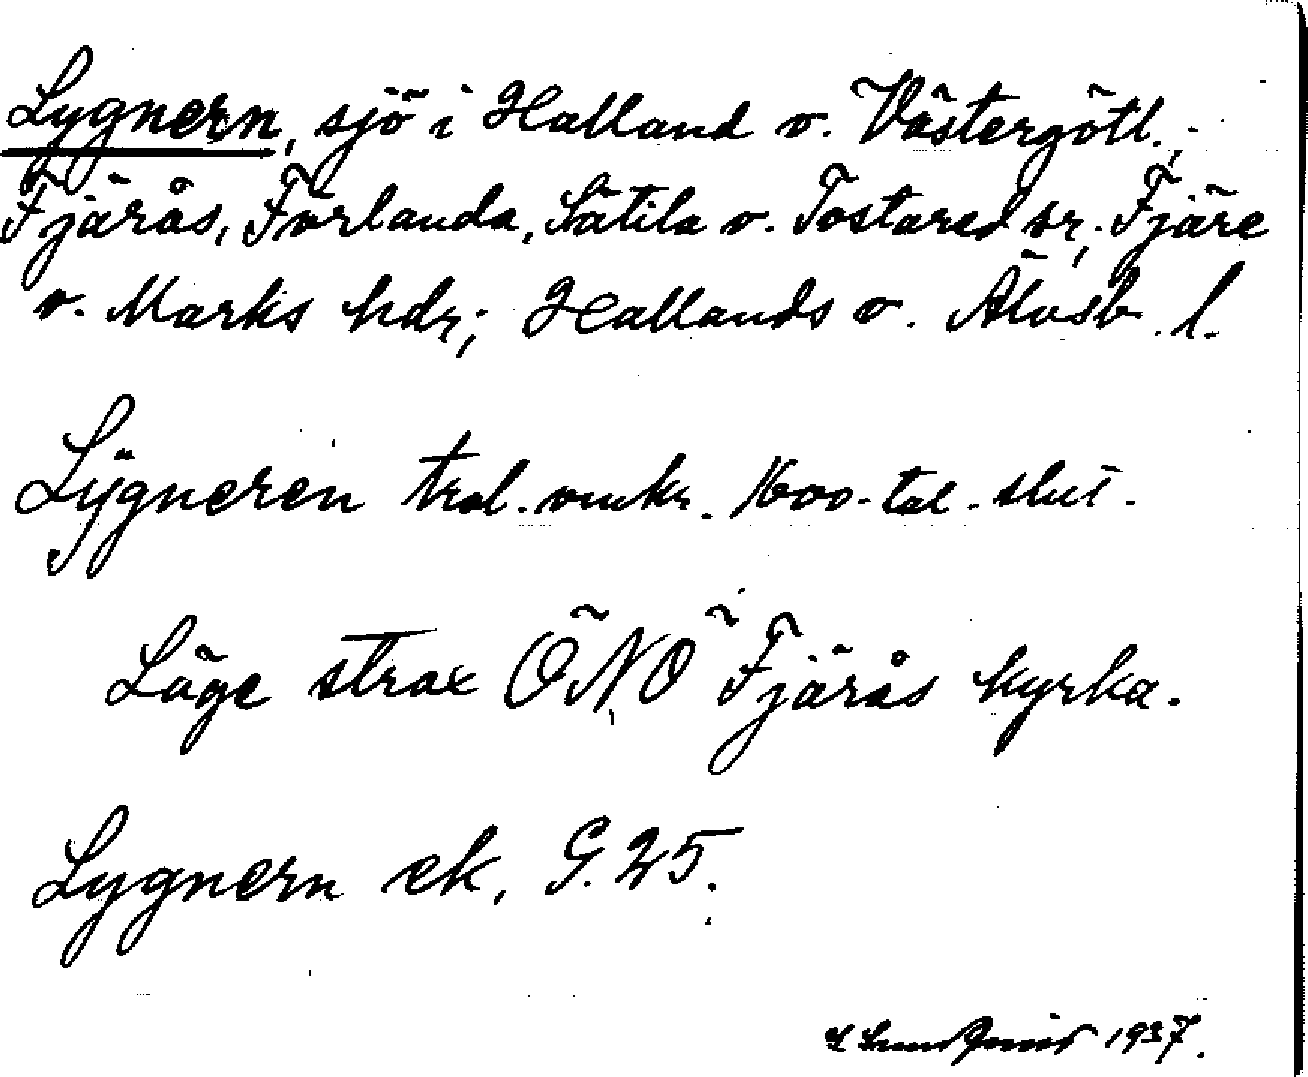 Lygnern, sjö i Halland o. Västergötl.;
Fjärås, Förlanda, Sätila o. Tostared sr; Fjäre
o. Marks hdr; Hallands o. Älvsb. l.
Lÿgneren trol. omkr. 1600-tal. slut.
Läge strax ÖNÖ Fjärås kyrka.
Lygnern ek. G. 25.
1937.